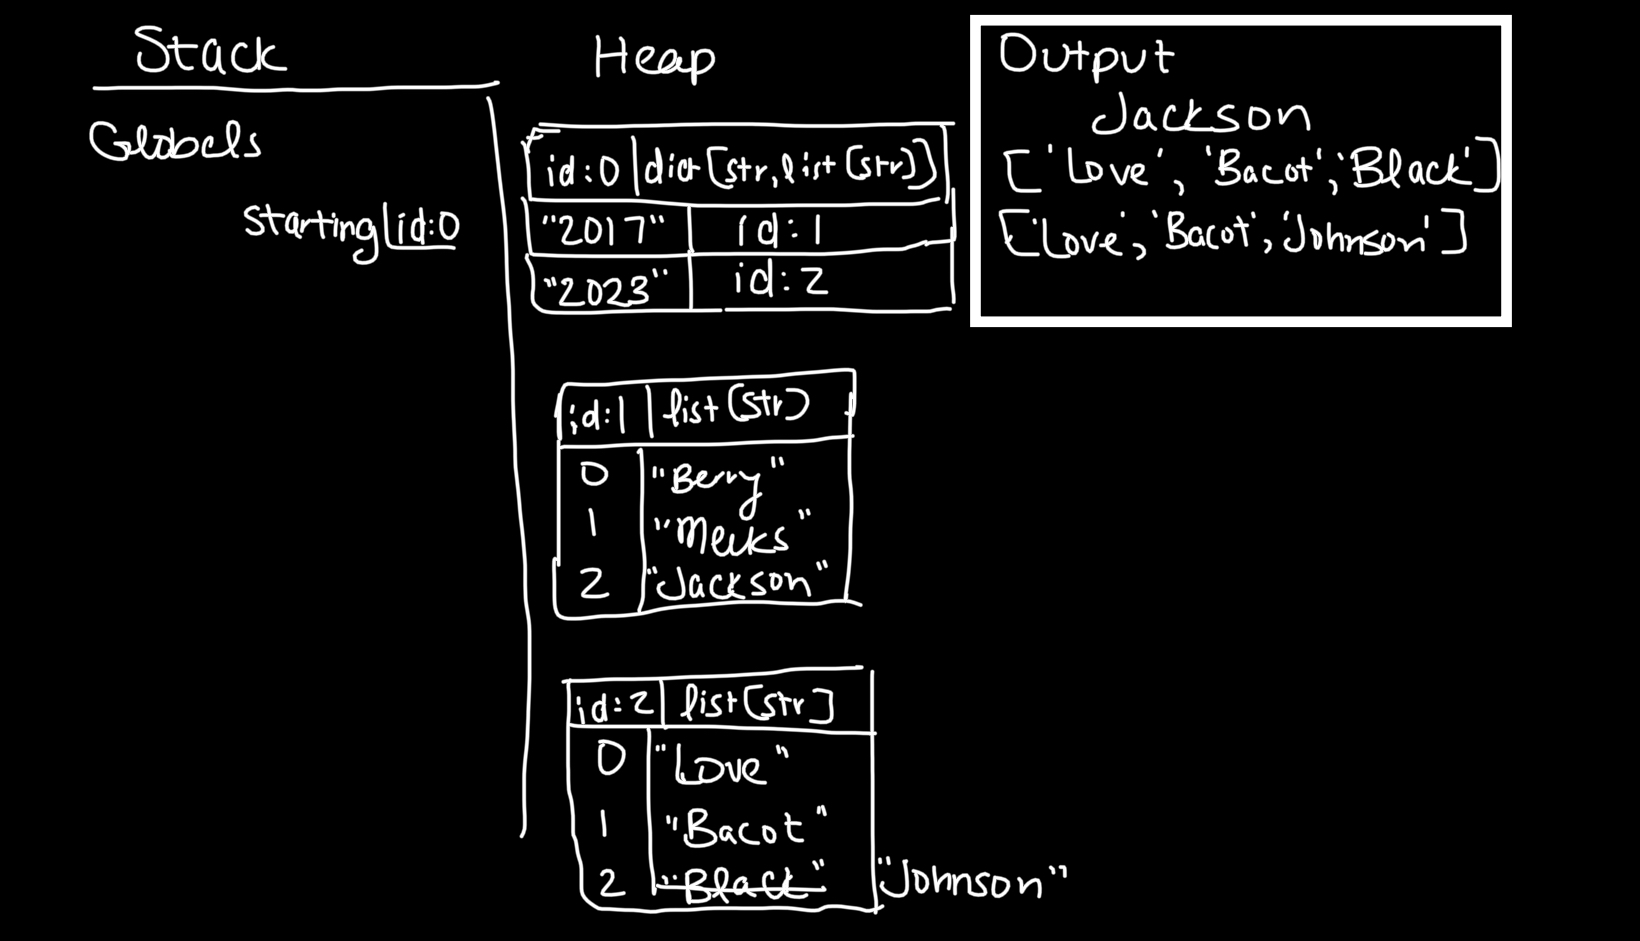 Stack
Globals
starting id:0
Heap
id:0 dict[str, list[str]]
"2017" id:1
"2023" id:2
id:1 list[str]
0 "Berry"
1 "Meeks"
2 "Jackson"
id:2 list[str]
0 "Love"
1 "Bacot"
2 "Black" "Johnson"
Output
Jackson
['Love', 'Bacot', 'Black']
['Love', 'Bacot', 'Johnson']